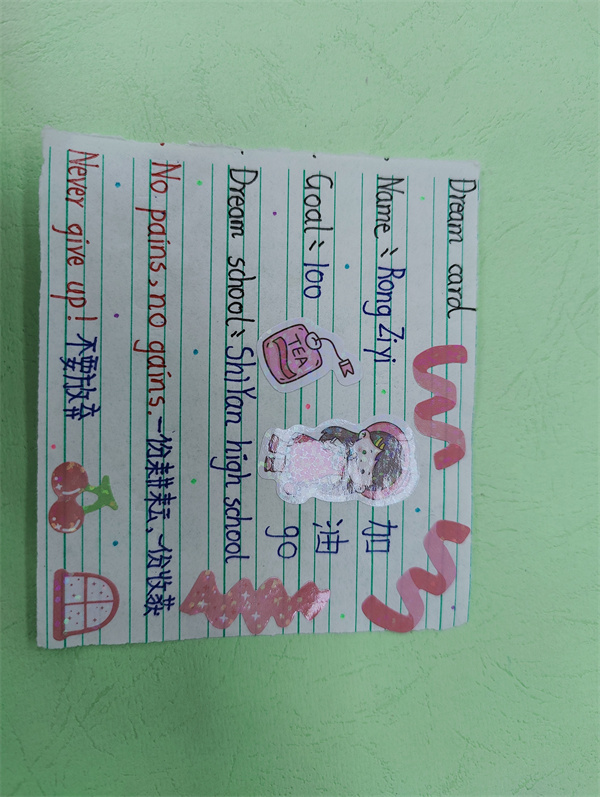 Dream card
Name: Rong Ziyi
加
Goal: 100
油
TEA
go
Dream school: ShiYan high school
No pains, no gains. 一份耕耘, 一份收获
Never give up! 不要放弃